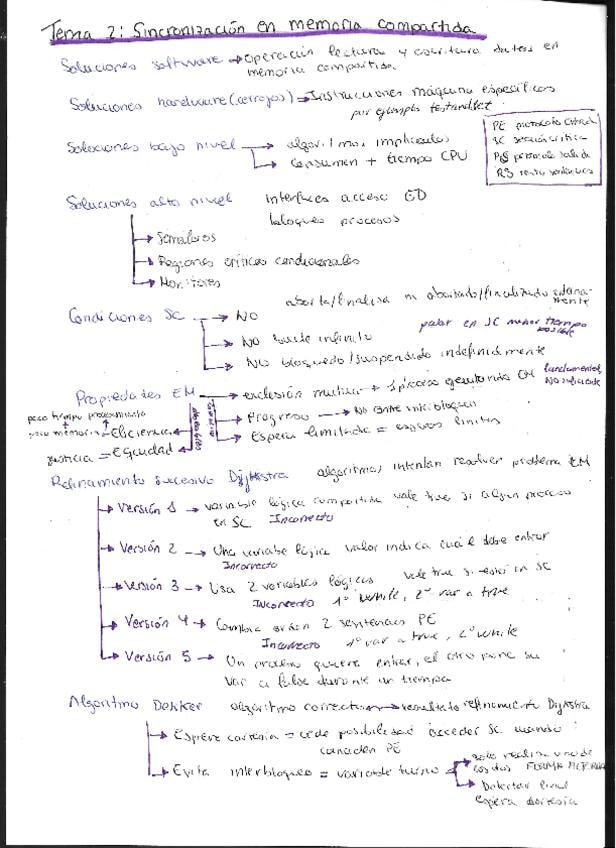 Tema 2: Sincronización en memoria compartida
Soluciones software → operación lectura y escritura datos en
memoria compartida
Soluciones hardware (cerrojos) → Instrucciones máquina específicas
por ejemplo testandset
PE protocolo entrada
SC sección crítica
PS protocolo salida
RS resto sentencias
Soluciones bajo nivel → algoritmos implicados
→ consumen + tiempo CPU
Soluciones alto nivel interfaces acceso ED
bloqueo procesos
→ Semáforos
→ Regiones críticas condicionales
→ Monitores
Condiciones SC → NO aborta/finaliza ni abortado/finalizado externamente
→ NO bucle infinito
pasar en SC menor tiempo posible
→ NO bloqueado/suspendido indefinidamente
Propiedades EM → exclusión mutua → 1 proceso ejecutando EM fundamental,
→ Progreso → No ante interbloqueo
→ Espera limitada =
poco tiempo procesamiento
poca memoria = Eficiencia
justicia = Equidad
Refinamiento sucesivo Dijkstra algoritmos intentan resolver problema EM
→ Versión 1 → variable lógica compartida vale true si algun proceso
en SC Incorrecto
→ Versión 2 → Una variable lógica valor indica cuál debe entrar
Incorrecto
→ Versión 3 → Usa 2 variables lógicas vale true si está en SC
Incorrecto 1º while, 2º var a true
→ Versión 4 → Cambia orden 2 sentencias PE
Incorrecto 1º var a true, 2º while
→ Versión 5 → Un proceso quiere entrar, el otro pone su
var a false durante un tiempo
Algoritmo Dekker algoritmo correcto → resultado refinamiento Dijkstra
→ Espera cortesía = cede posibilidad acceder SC cuando
coinciden PE
→ Evita interbloqueo = variable turno → solo realiza una de
las dos
→ Detectar
espera cortesía